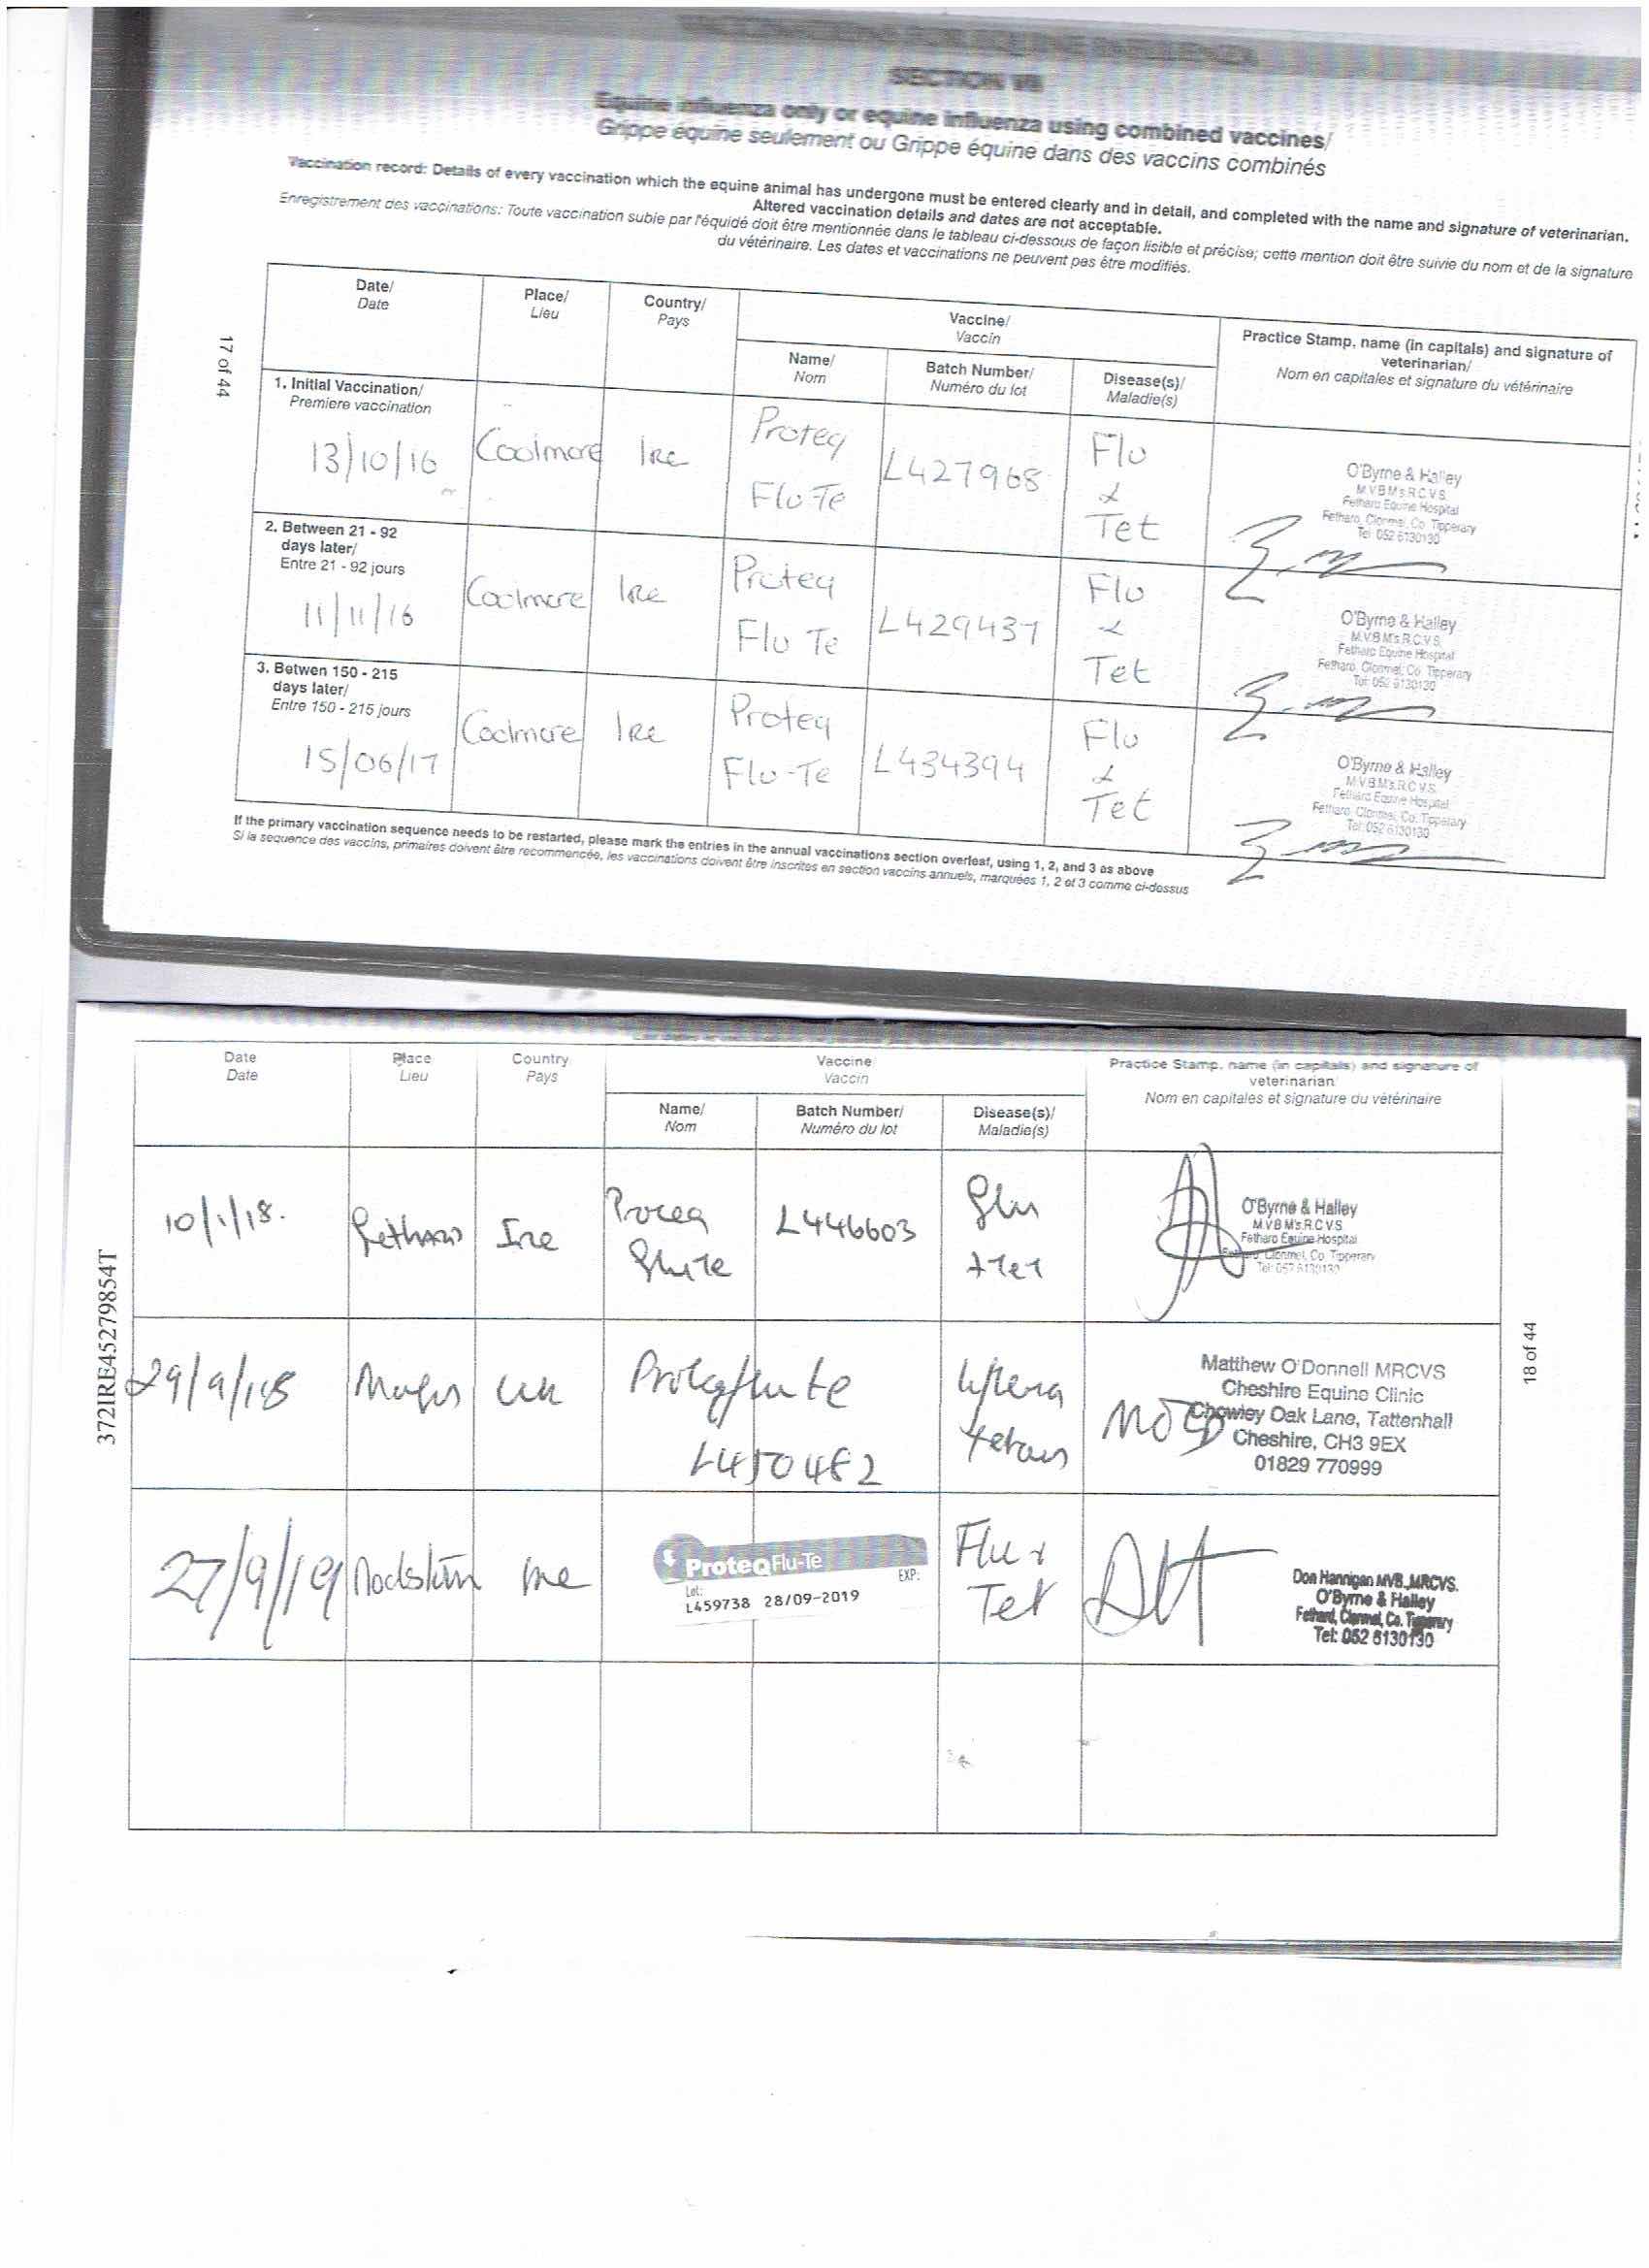 SECTION VII
Equine influenza only or equine influenza using combined vaccines/
Grippe équine seulement ou Grippe équine dans des vaccins combinés
Vaccination record: Details of every vaccination which the equine animal has undergone must be entered clearly and in detail, and completed with the name and signature of veterinarian.
Altered vaccination details and dates are not acceptable.
Enregistrement des vaccinations: Toute vaccination subie par l'équidé doit être mentionnée dans le tableau ci-dessous de façon lisible et précise; cette mention doit être suivie du nom et de la signature
du vétérinaire. Les dates et vaccinations ne peuvent pas être modifiés.
17 of 44
Date/
Date
Place/
Lieu
Country/
Pays
Vaccine/
Vaccin
Name/
Nom
Batch Number/
Numéro du lot
Disease(s)/
Maladie(s)
Practice Stamp, name (in capitals) and signature of
veterinarian/
Nom en capitales et signature du vétérinaire
1. Initial Vaccination/
Premiere vaccination
13/10/16
Coolmore
Ire
Proteq
Flu-Te
L427968
Flu
&
Tet
O'Byrne & Halley
M.V.B M's R.C.V.S
Fethard Equine Hospital
Fethard, Clonmel, Co. Tipperary
Tel: 052 6130130
2. Between 21 - 92
days later/
Entre 21 - 92 jours
11/11/16
Coolmore
Ire
Proteq
Flu Te
L429437
Flu
&
Tet
O'Byrne & Halley
M.V.B M's R.C.V.S.
Fethard Equine Hospital
Fethard, Clonmel, Co. Tipperary
Tel: 052 6130130
3. Betwen 150 - 215
days later/
Entre 150 - 215 jours
15/06/17
Coolmore
Ire
Proteq
Flu-Te
L434394
Flu
&
Tet
O'Byrne & Halley
M.V.B M's R.C.V.S.
Fethard Equine Hospital
Fethard, Clonmel, Co. Tipperary
Tel: 052 6130130
If the primary vaccination sequence needs to be restarted, please mark the entries in the annual vaccinations section overleaf, using 1, 2, and 3 as above
Si la sequence des vaccins, primaires doivent être recommencée, les vaccinations doivent être inscrites en section vaccins annuels, marquées 1, 2 et 3 comme ci-dessus
372IRE45279854T
Date
Date
Place
Lieu
Country
Pays
Vaccine
Vaccin
Name/
Nom
Batch Number/
Numéro du lot
Disease(s)/
Maladie(s)
Practice Stamp, name (in capitals) and signature of
veterinarian
Nom en capitales et signature du vétérinaire
10/1/18.
Fethard
Ire
L446603
Flu
+Tet
O'Byrne & Halley
M.V.B M's.R.C.V.S
Fethard Equine Hospital
Clonmel, Co. Tipperary
29/9/18
UK
Proteqflute
Matthew O'Donnell MRCVS
Cheshire Equine Clinic
Chowley Oak Lane, Tattenhall
Cheshire, CH3 9EX
01829 770999
27/9/19
Ire
ProteqFlu-Te
Lot:
EXP:
L459738 28/09-2019
Flu +
Tet
Don Hannigan MVB.,MRCVS.
O'Byrne & Halley
Fethard, Clonmel, Co. Tipperary
Tel: 052 6130130
18 of 44